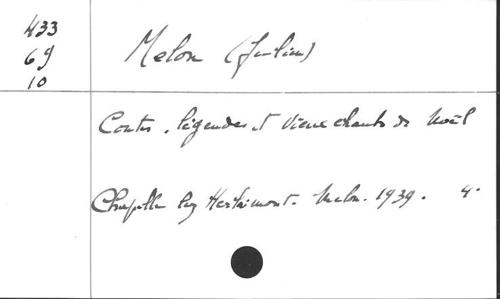 433
69
10
Melon (Julien)
Contes, légendes et vieux chants de Noël
Chapelle lez Herlaimont. Melon. 1939. 4°